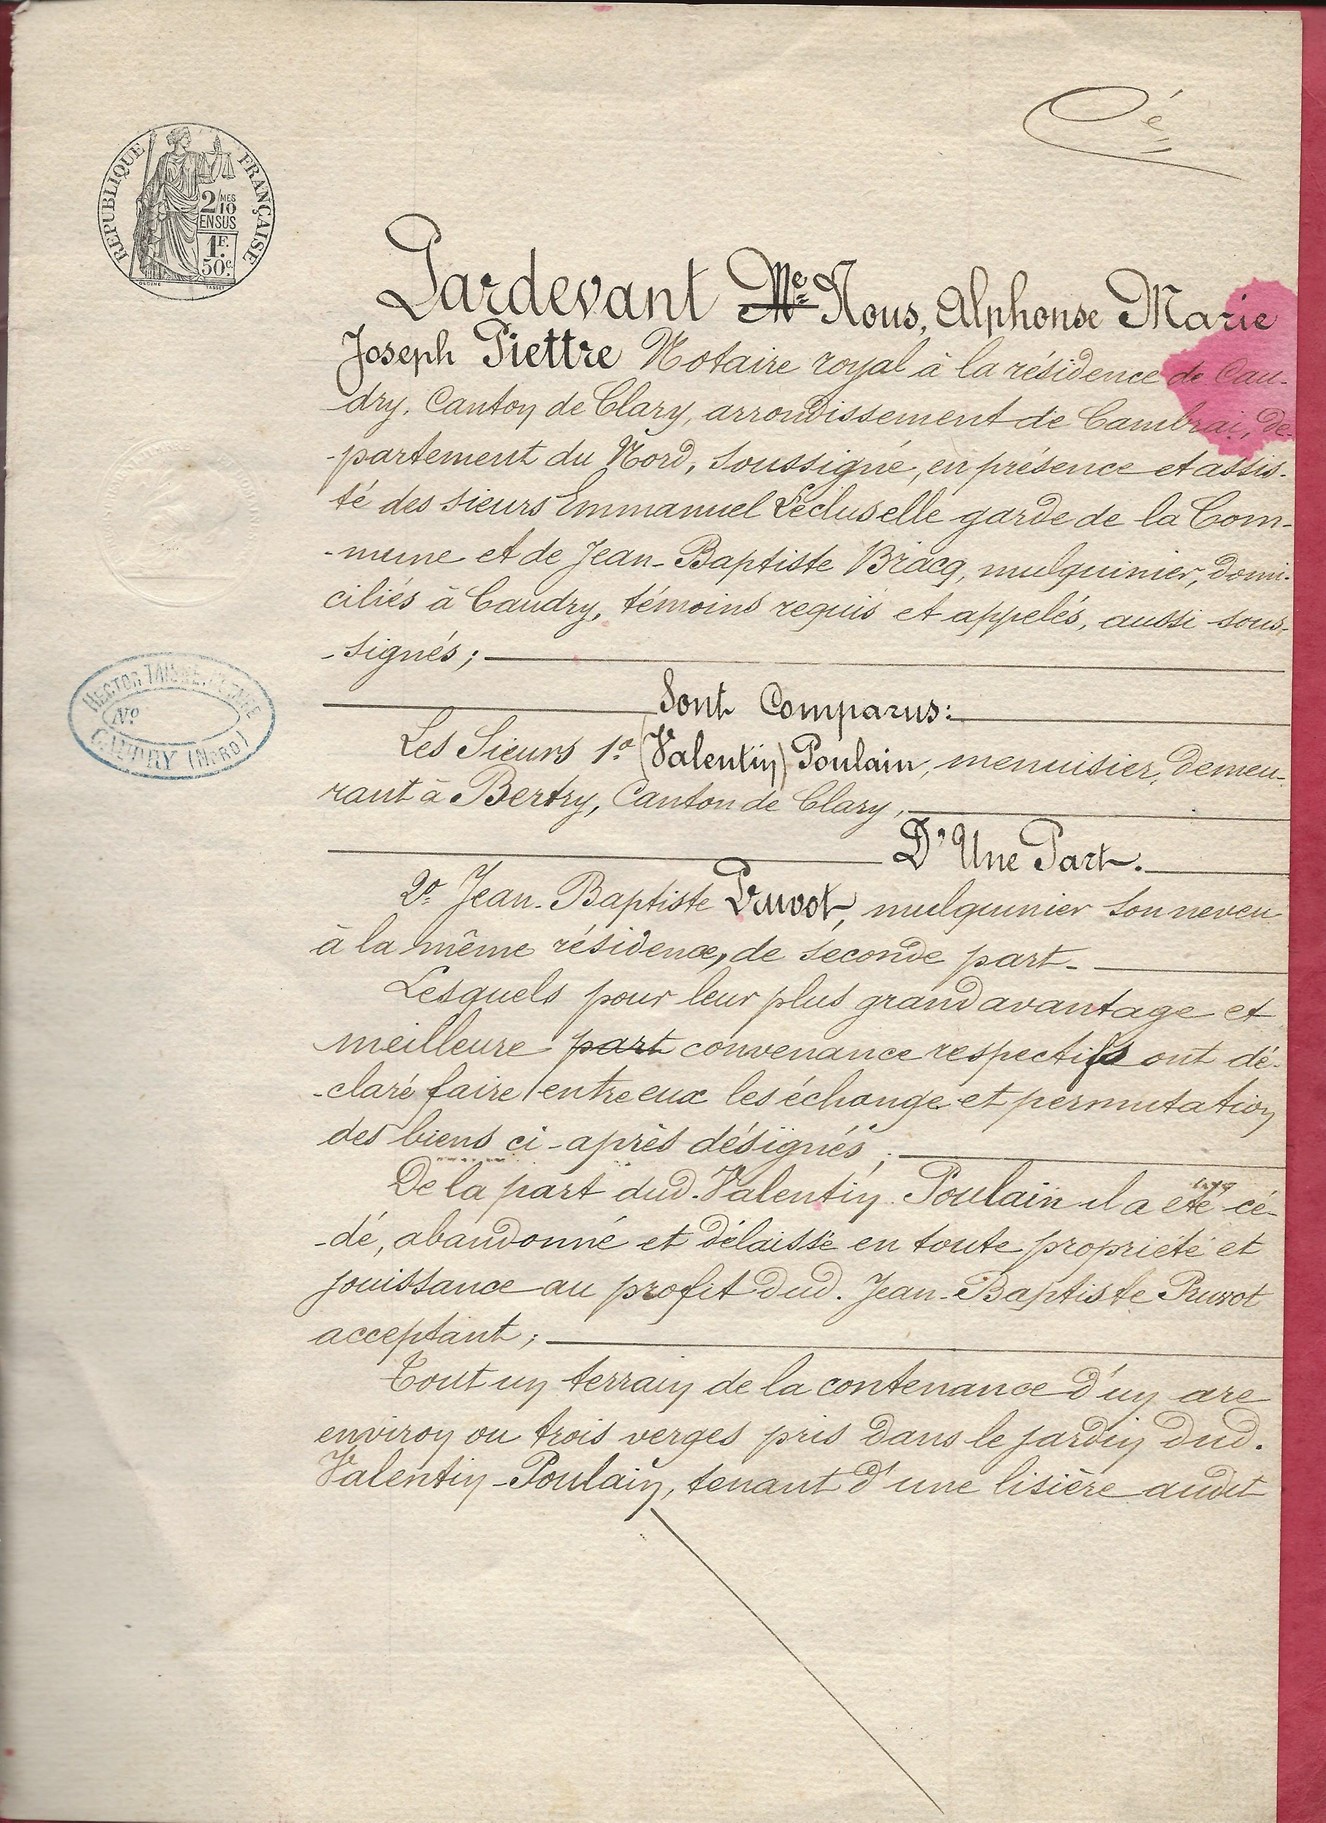 Cé
RÉPUBLIQUE FRANÇAISE
2/MES
10
EN SUS
1F.
50c.
Pardevant Me Nous, Alphonse Marie
Joseph Piettre Notaire royal à la résidence de Cau-
dry, Canton de Clary, arrondissement de Cambrai, dé-
-partement du Nord, soussigné, en présence et assis-
té des sieurs Emmanuel Lécluselle garde de la Com-
-mune et de Jean-Baptiste Bracq, mulquinier, domi-
ciliés à Caudry, témoins requis et appelés, aussi sous-
-signés;
Sont Comparus:
HECTOR
No
CAUDRY (NORD)
Les Sieurs 1o (Valentin) Poulain, menuisier, demeu-
rant à Bertry, Canton de Clary,
D'Une Part.
2o Jean-Baptiste Pruvot, mulquinier son neveu
à la même résidence, de seconde part.
Lesquels pour leur plus grand avantage et
meilleure part convenance respectifs ont dé-
-claré faire entre eux les échange et permutation
des biens ci-après désignés;
De la part dud. Valentin Poulain il a été cé-
-dé, abandonné et délaissé en toute propriété et
jouissance au profit dud. Jean-Baptiste Pruvot
acceptant;
Tout un terrain de la contenance d'un are
environ ou trois verges pris dans le jardin dud.
Valentin Poulain, tenant d'une lisière audit